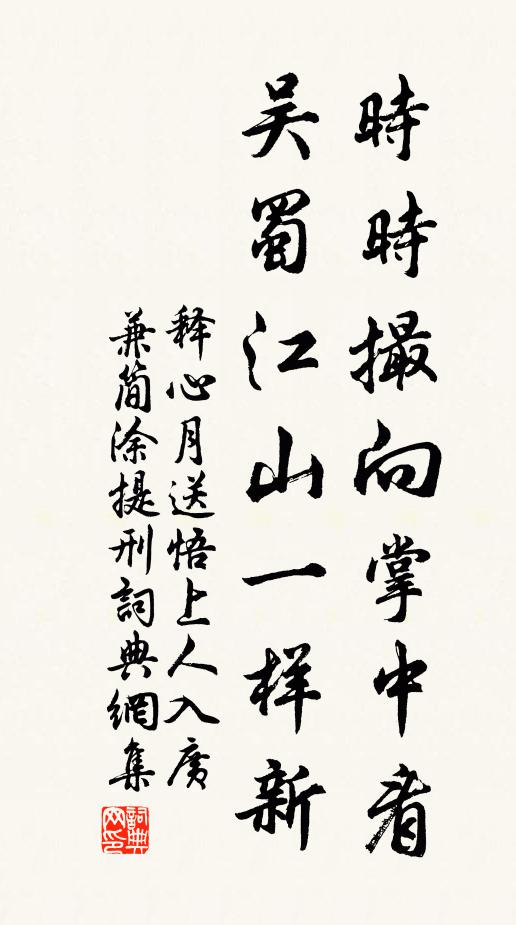 時時撮向掌中看
吳蜀江山一样新
释心月送悟上人入廣
兼簡涂提刑詞典網集
詞典網印